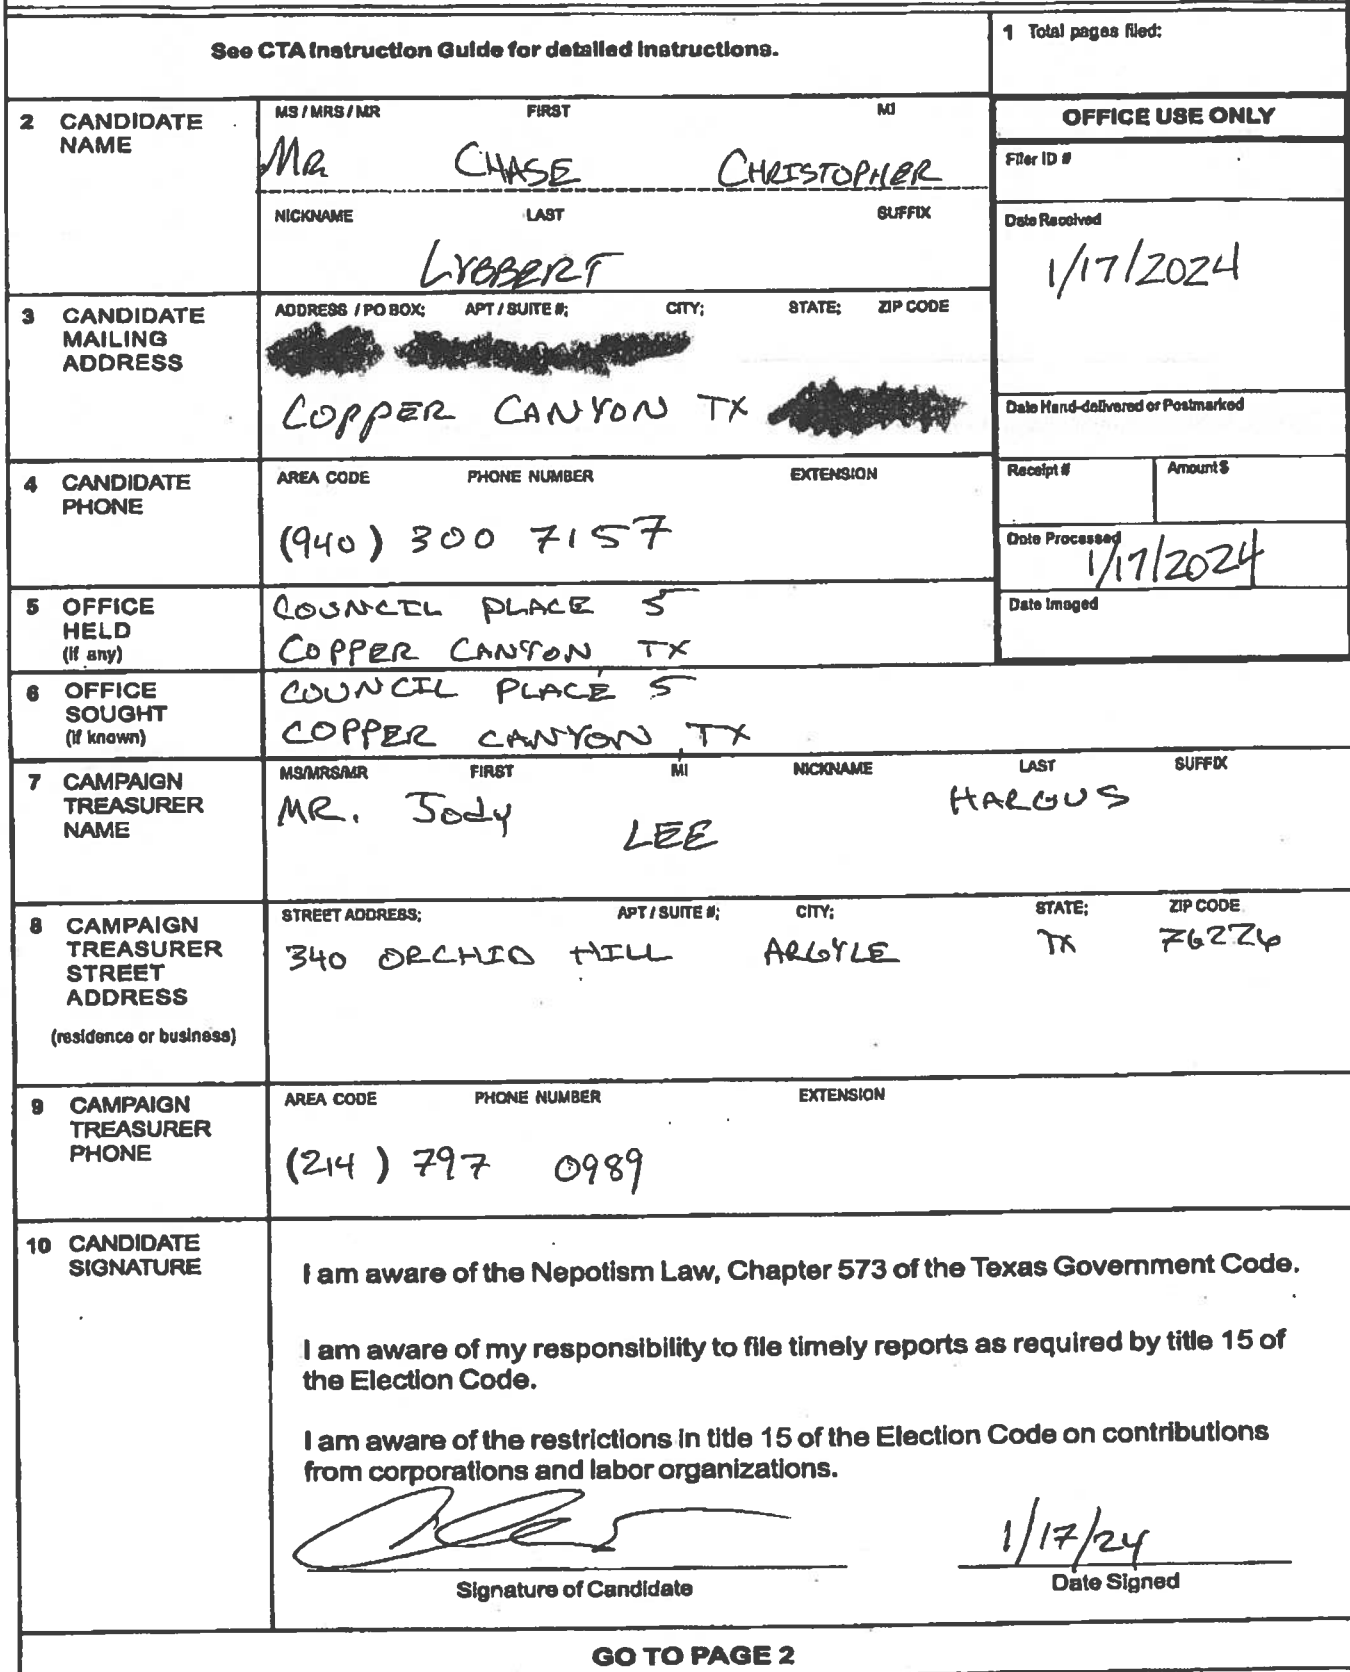 See CTA Instruction Guide for detailed instructions.
1 Total pages filed:
2 CANDIDATE NAME
MS / MRS / MR FIRST MI
MR CHASE CHRISTOPHER
NICKNAME LAST SUFFIX
LYBBERT
OFFICE USE ONLY
Filer ID #
Date Received
1/17/2024
3 CANDIDATE MAILING ADDRESS
ADDRESS / PO BOX; APT / SUITE #; CITY; STATE; ZIP CODE
COPPER CANYON TX
Date Hand-delivered or Postmarked
4 CANDIDATE PHONE
AREA CODE PHONE NUMBER EXTENSION
(940) 300 7157
Receipt # Amount $
Date Processed
1/17/2024
Date Imaged
5 OFFICE HELD
(if any)
COUNCIL PLACE 5
COPPER CANYON, TX
6 OFFICE SOUGHT
(if known)
COUNCIL PLACE 5
COPPER CANYON, TX
7 CAMPAIGN TREASURER NAME
MS/MRS/MR FIRST MI NICKNAME LAST SUFFIX
MR. Jody LEE HARGUS
8 CAMPAIGN TREASURER STREET ADDRESS
(residence or business)
STREET ADDRESS; APT / SUITE #; CITY; STATE; ZIP CODE
340 ORCHID HILL ARGYLE TX 76226
9 CAMPAIGN TREASURER PHONE
AREA CODE PHONE NUMBER EXTENSION
(214) 797 0989
10 CANDIDATE SIGNATURE
I am aware of the Nepotism Law, Chapter 573 of the Texas Government Code.
I am aware of my responsibility to file timely reports as required by title 15 of
the Election Code.
I am aware of the restrictions in title 15 of the Election Code on contributions
from corporations and labor organizations.
1/17/24
Signature of Candidate Date Signed
GO TO PAGE 2